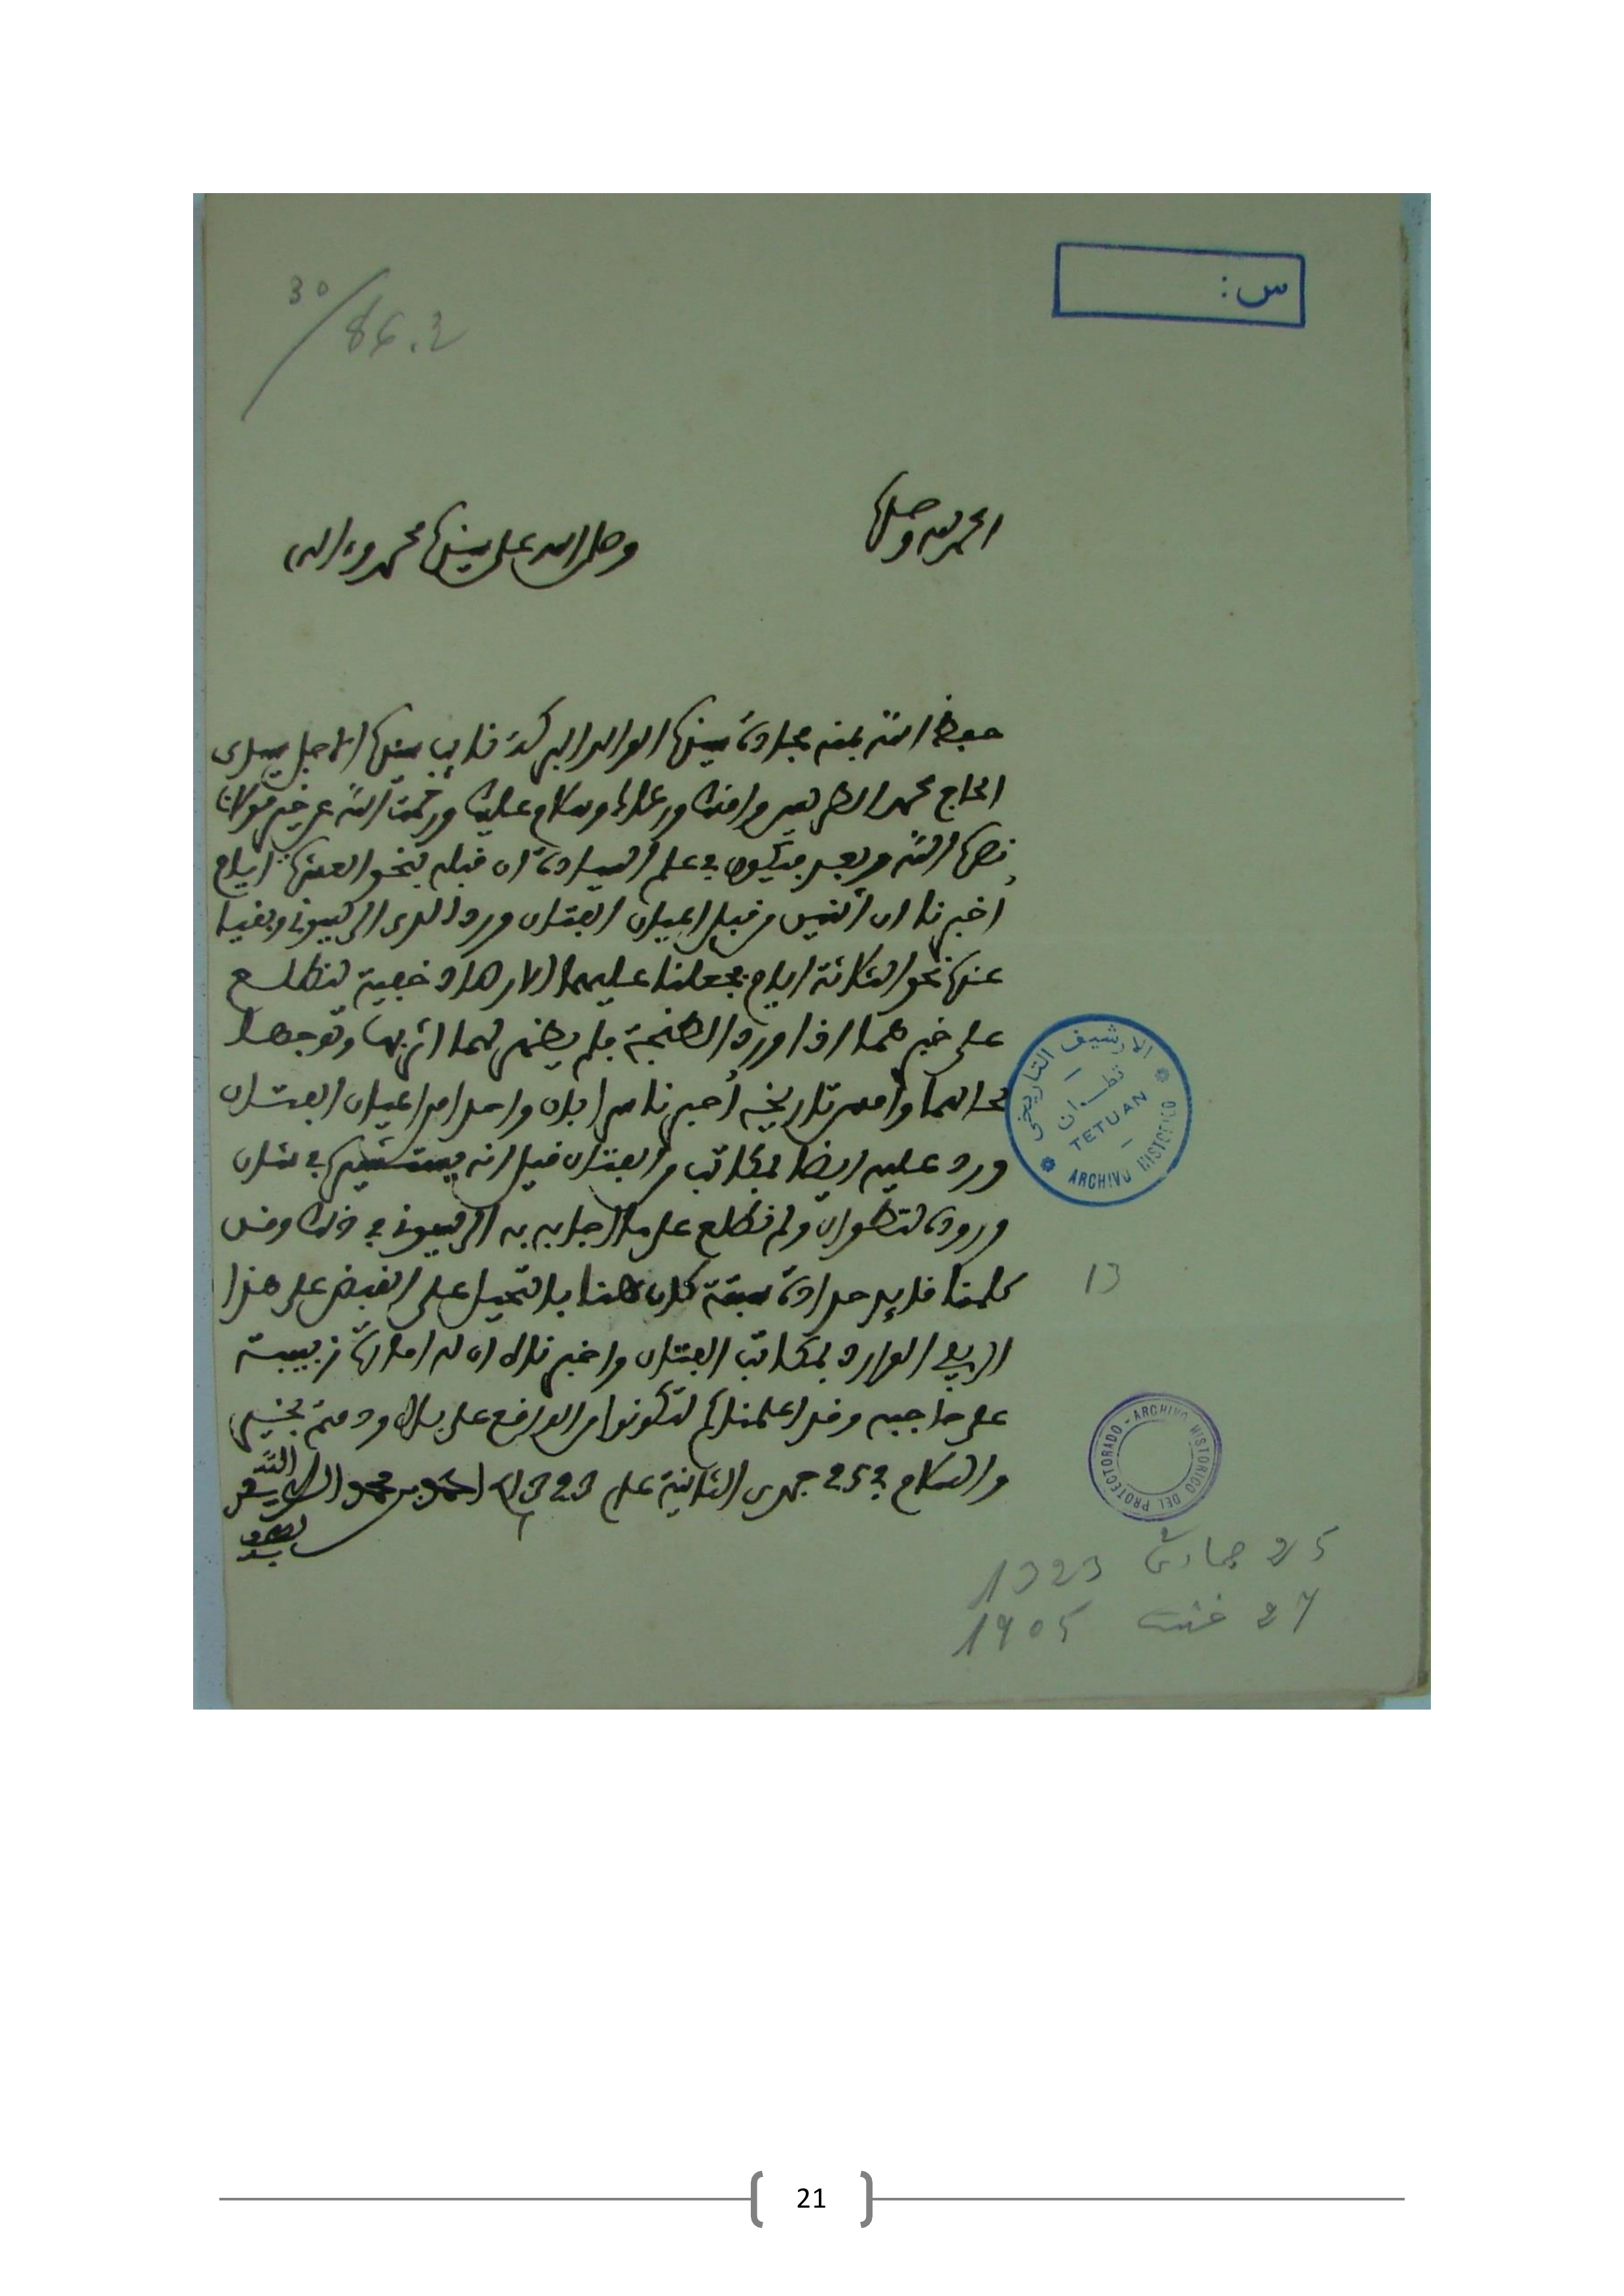 س:
30/86.2
الحمد لله وحده
وصلى الله على سيدنا محمد وءاله
حفظ الله بمنه مجادة سيدنا الوالد البركة نايب سيدنا الاجل سيدي
الحاج محمد الطريس وامنك ورعاك وسلام عليك ورحمت الله عن خير مولانا
نصره الله وبعد فيكون في علم السيادة ان قبله بنحو العشرة ايام
أخبرنا ان اثنين من قبل اعيان الفتان وردا لدى الريسوني وبقيا
عنده نحو الثلاثة ايام فجعلنا عليهما الارصاد خفية لنطلع
على خبرهما اذا وردا لطنجة فلم يظهر لهما اثر بها وتوجها
لحالهما وامس تاريخه أخبرنا من ان واحدا من اعيان الفتان
ورد عليه ايضا بمكاتب من الفتان قيل انه يستشيره في شان
وروده لتطوان ولم نطلع على ما اجابه به الريسوني في ذلك ونفس
كلمنا قايد حدادة سبتة كان هنا بالتحيل على القبض على هذا
الريفي الوارد بمكاتب الفتان واخبرناه ان له امارة زبيبة
على حاجبه وقد اعلمناكم لتكونوا من الواقع على بال ودمتم بخير
والسلام في 25 جمدى الثانية عام 1323 احمد بن محمد الطريس لطف الله به
الارشيف التاريخي
تطوان
TETUAN
ARCHIVO HISTORICO
13
ARCHIVO HISTORICO DEL PROTECTORADO
25 جمادى 2 1323
27 غشت 1905
21